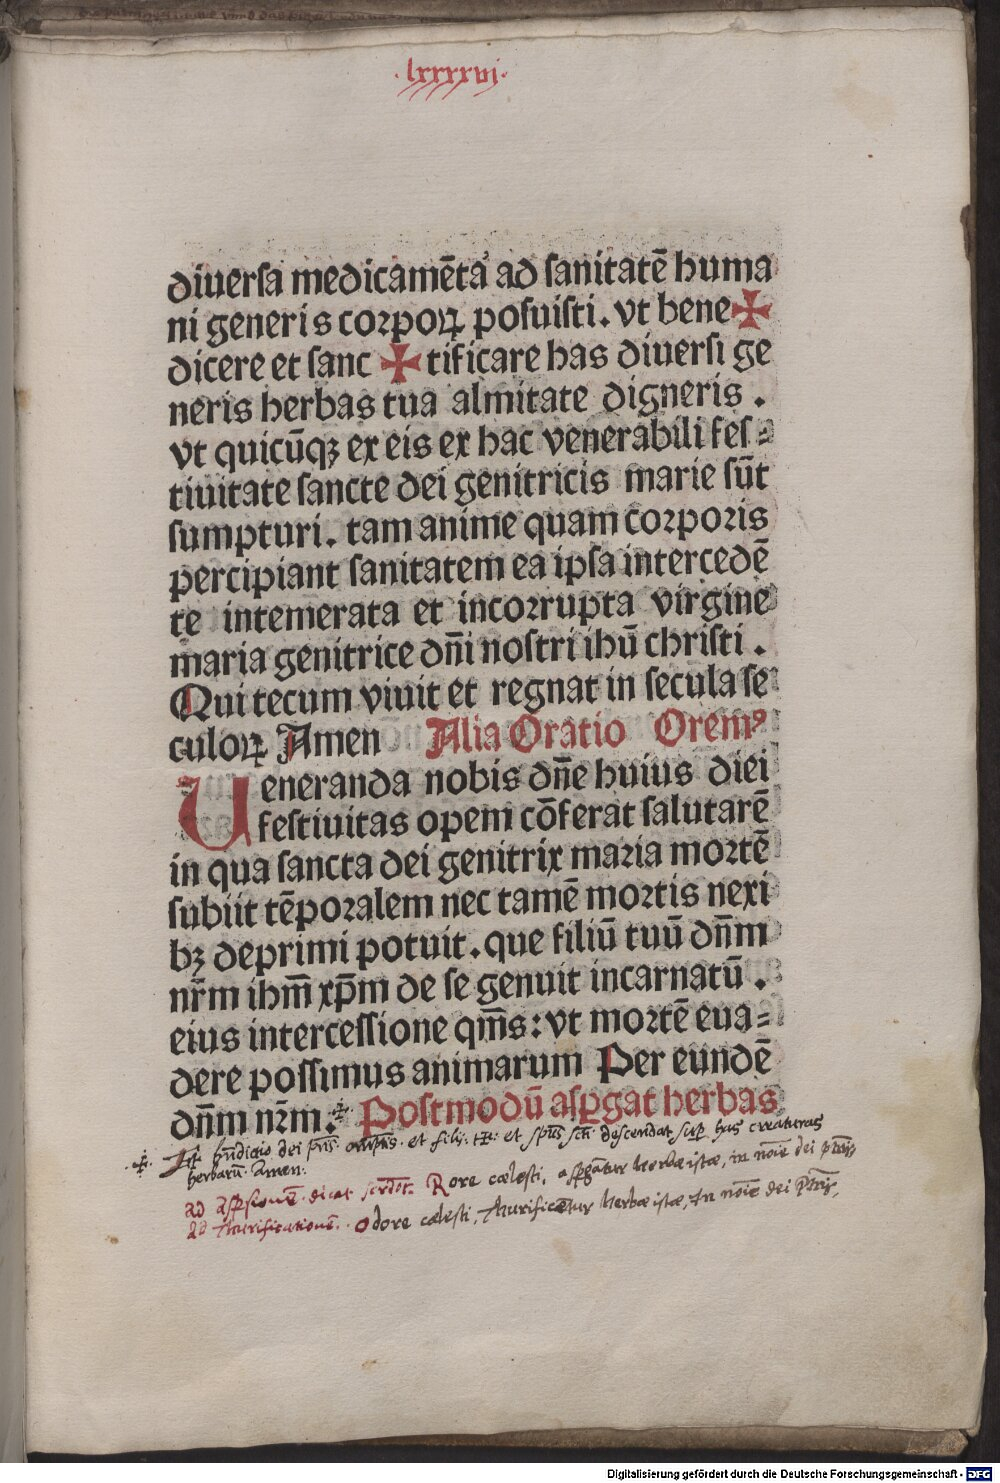 ·lxxxxvj·
diuersa medicamēta ad sanitatē huma
ni generis corpoꝝ posuisti. vt bene✠
dicere et sanc ✠ tificare has diuersi ge
neris herbas tua almitate digneris .
vt quicūqꝫ ex eis ex hac venerabili fes⸗
tiuitate sancte dei genitricis marie sūt
sumpturi. tam anime quam corporis
percipiant sanitatem ea ipsa intercedē
te intemerata et incorrupta virgine
maria genitrice dn̄i nostri ihū christi .
Qui tecum viuit et regnat in secula se
culoꝝ Amen Alia Oratio Oremꝰ
Ueneranda nobis dn̄e huius diei
festiuitas opem cōferat salutarē
in qua sancta dei genitrix maria mortē
subiit tēporalem nec tamē mortis nexi
bꝫ deprimi potuit. que filiū tuū dn̄m
nr̄m ihm̄ xp̄m de se genuit incarnatū .
eius intercessione qm̄s: vt mortē eua⸗
dere possimus animarum Per eundē
dn̄m nr̄m. Postmodū asꝑgat herbas
dei et filij et descendat has creaturas
herbarū Amen:
ad aspsionē dicat Rore cælesti, aspgātur herbæ istæ, in noīe dei pr̄is,
Ad thurificationē. Odore cælesti, thurificētur herbæ istæ, In noīe dei pr̄is,
Digitalisierung gefördert durch die Deutsche Forschungsgemeinschaft - DFG